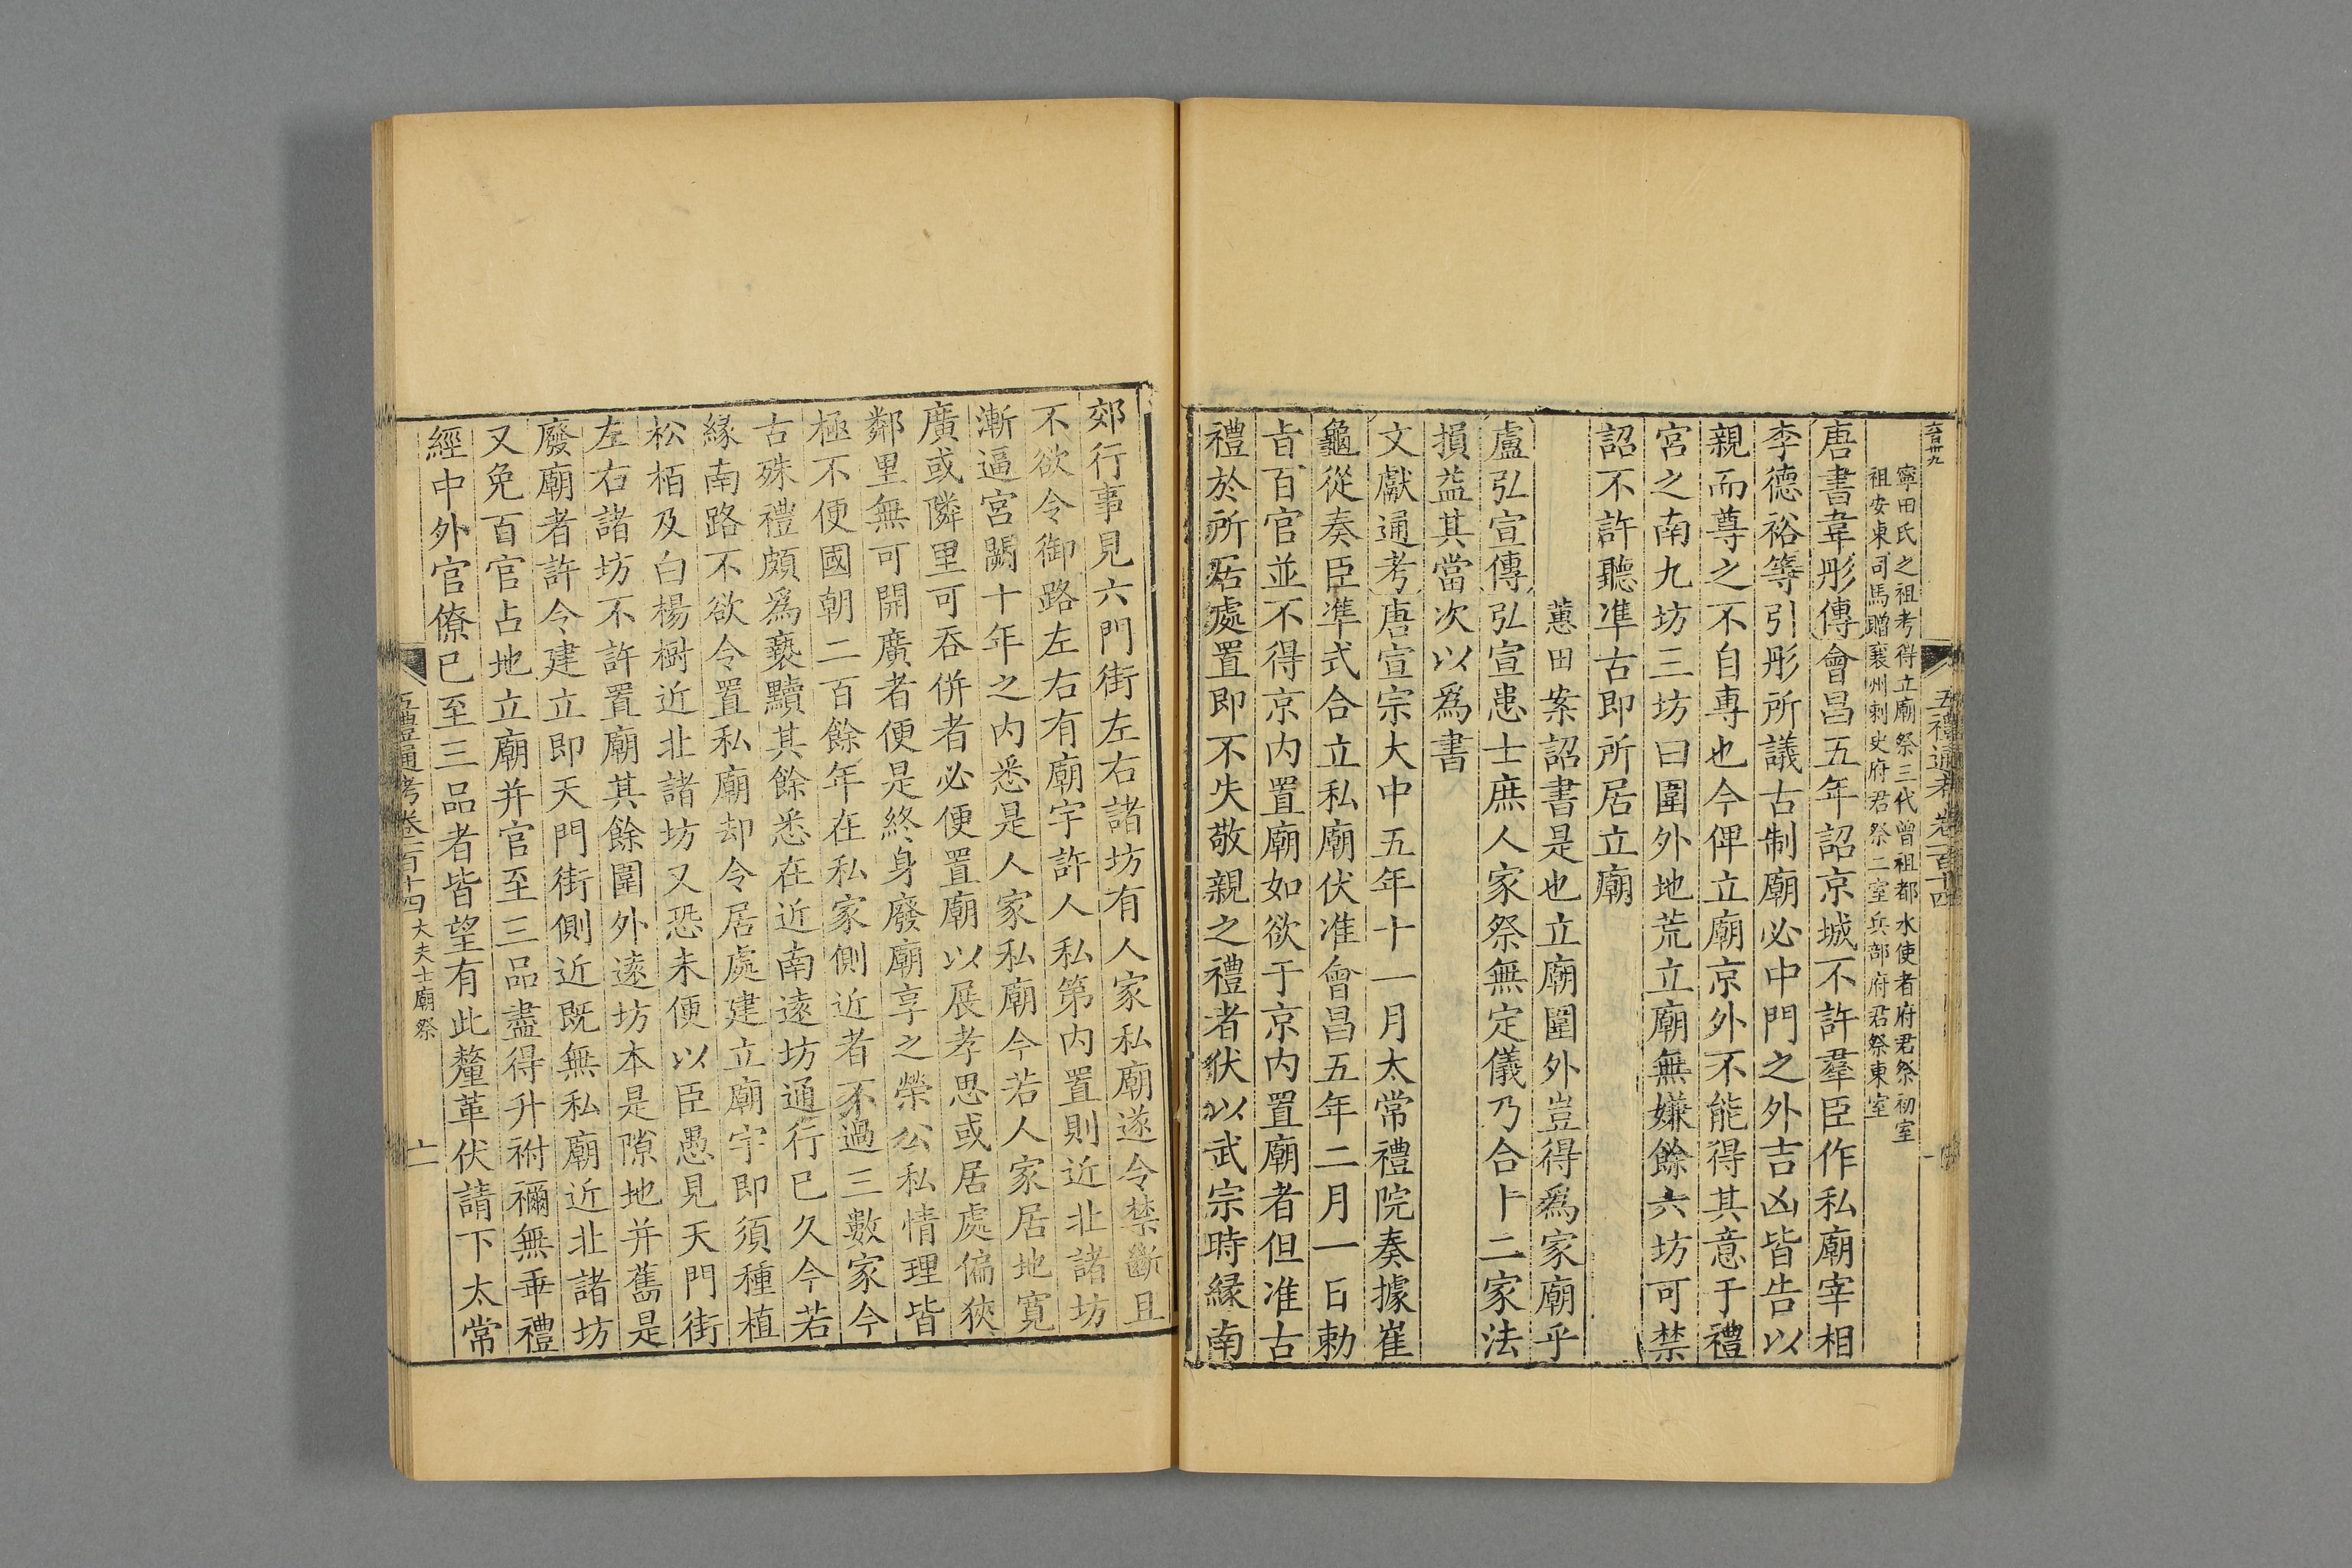 五禮通考卷一百十四
寧田氏之祖考得立廟祭三代曾祖都水使者府君祭初室
祖安東司馬贈襄州刺史府君祭二室兵部府君祭東室
唐書韋彤傳會昌五年詔京城不許羣臣作私廟宰相
李德裕等引彤所議古制廟必中門之外吉凶皆告以
親而尊之不自專也今俾立廟京外不能得其意于禮
宮之南九坊三坊曰圍外地荒立廟無嫌餘六坊可禁
詔不許聽準古即所居立廟
蕙田案詔書是也立廟圍外豈得爲家廟乎
盧弘宣傳弘宣患士庶人家祭無定儀乃合十二家法
損益其當次以爲書
文獻通考唐宣宗大中五年十一月太常禮院奏據崔
龜從奏臣準式合立私廟伏准會昌五年二月一日勅
旨百官並不得京内置廟如欲于京内置廟者但准古
禮於所居處置即不失敬親之禮者伏以武宗時緣南
郊行事見六門街左右諸坊有人家私廟遂令禁斷且
不欲令御路左右有廟宇許人私第内置則近北諸坊
漸逼宮闕十年之内悉是人家私廟今若人家居地寬
廣或隣里可吞併者必便置廟以展孝思或居處偏狹
鄰里無可開廣者便是終身廢廟享之榮公私情理皆
極不便國朝二百餘年在私家側近者不過三數家今
古殊禮頗爲褻黷其餘悉在近南遠坊通行已久今若
緣南路不欲令置私廟却令居處建立廟宇即須種植
松栢及白楊樹近北諸坊又恐未便以臣愚見天門街
左右諸坊不許置廟其餘圍外遠坊本是隙地并舊是
廢廟者許令建立即天門街側近既無私廟近北諸坊
又免百官占地立廟并官至三品盡得升祔禰無乖禮
經中外官僚已至三品者皆望有此釐革伏請下太常
五禮通考卷一百十四大夫士廟祭